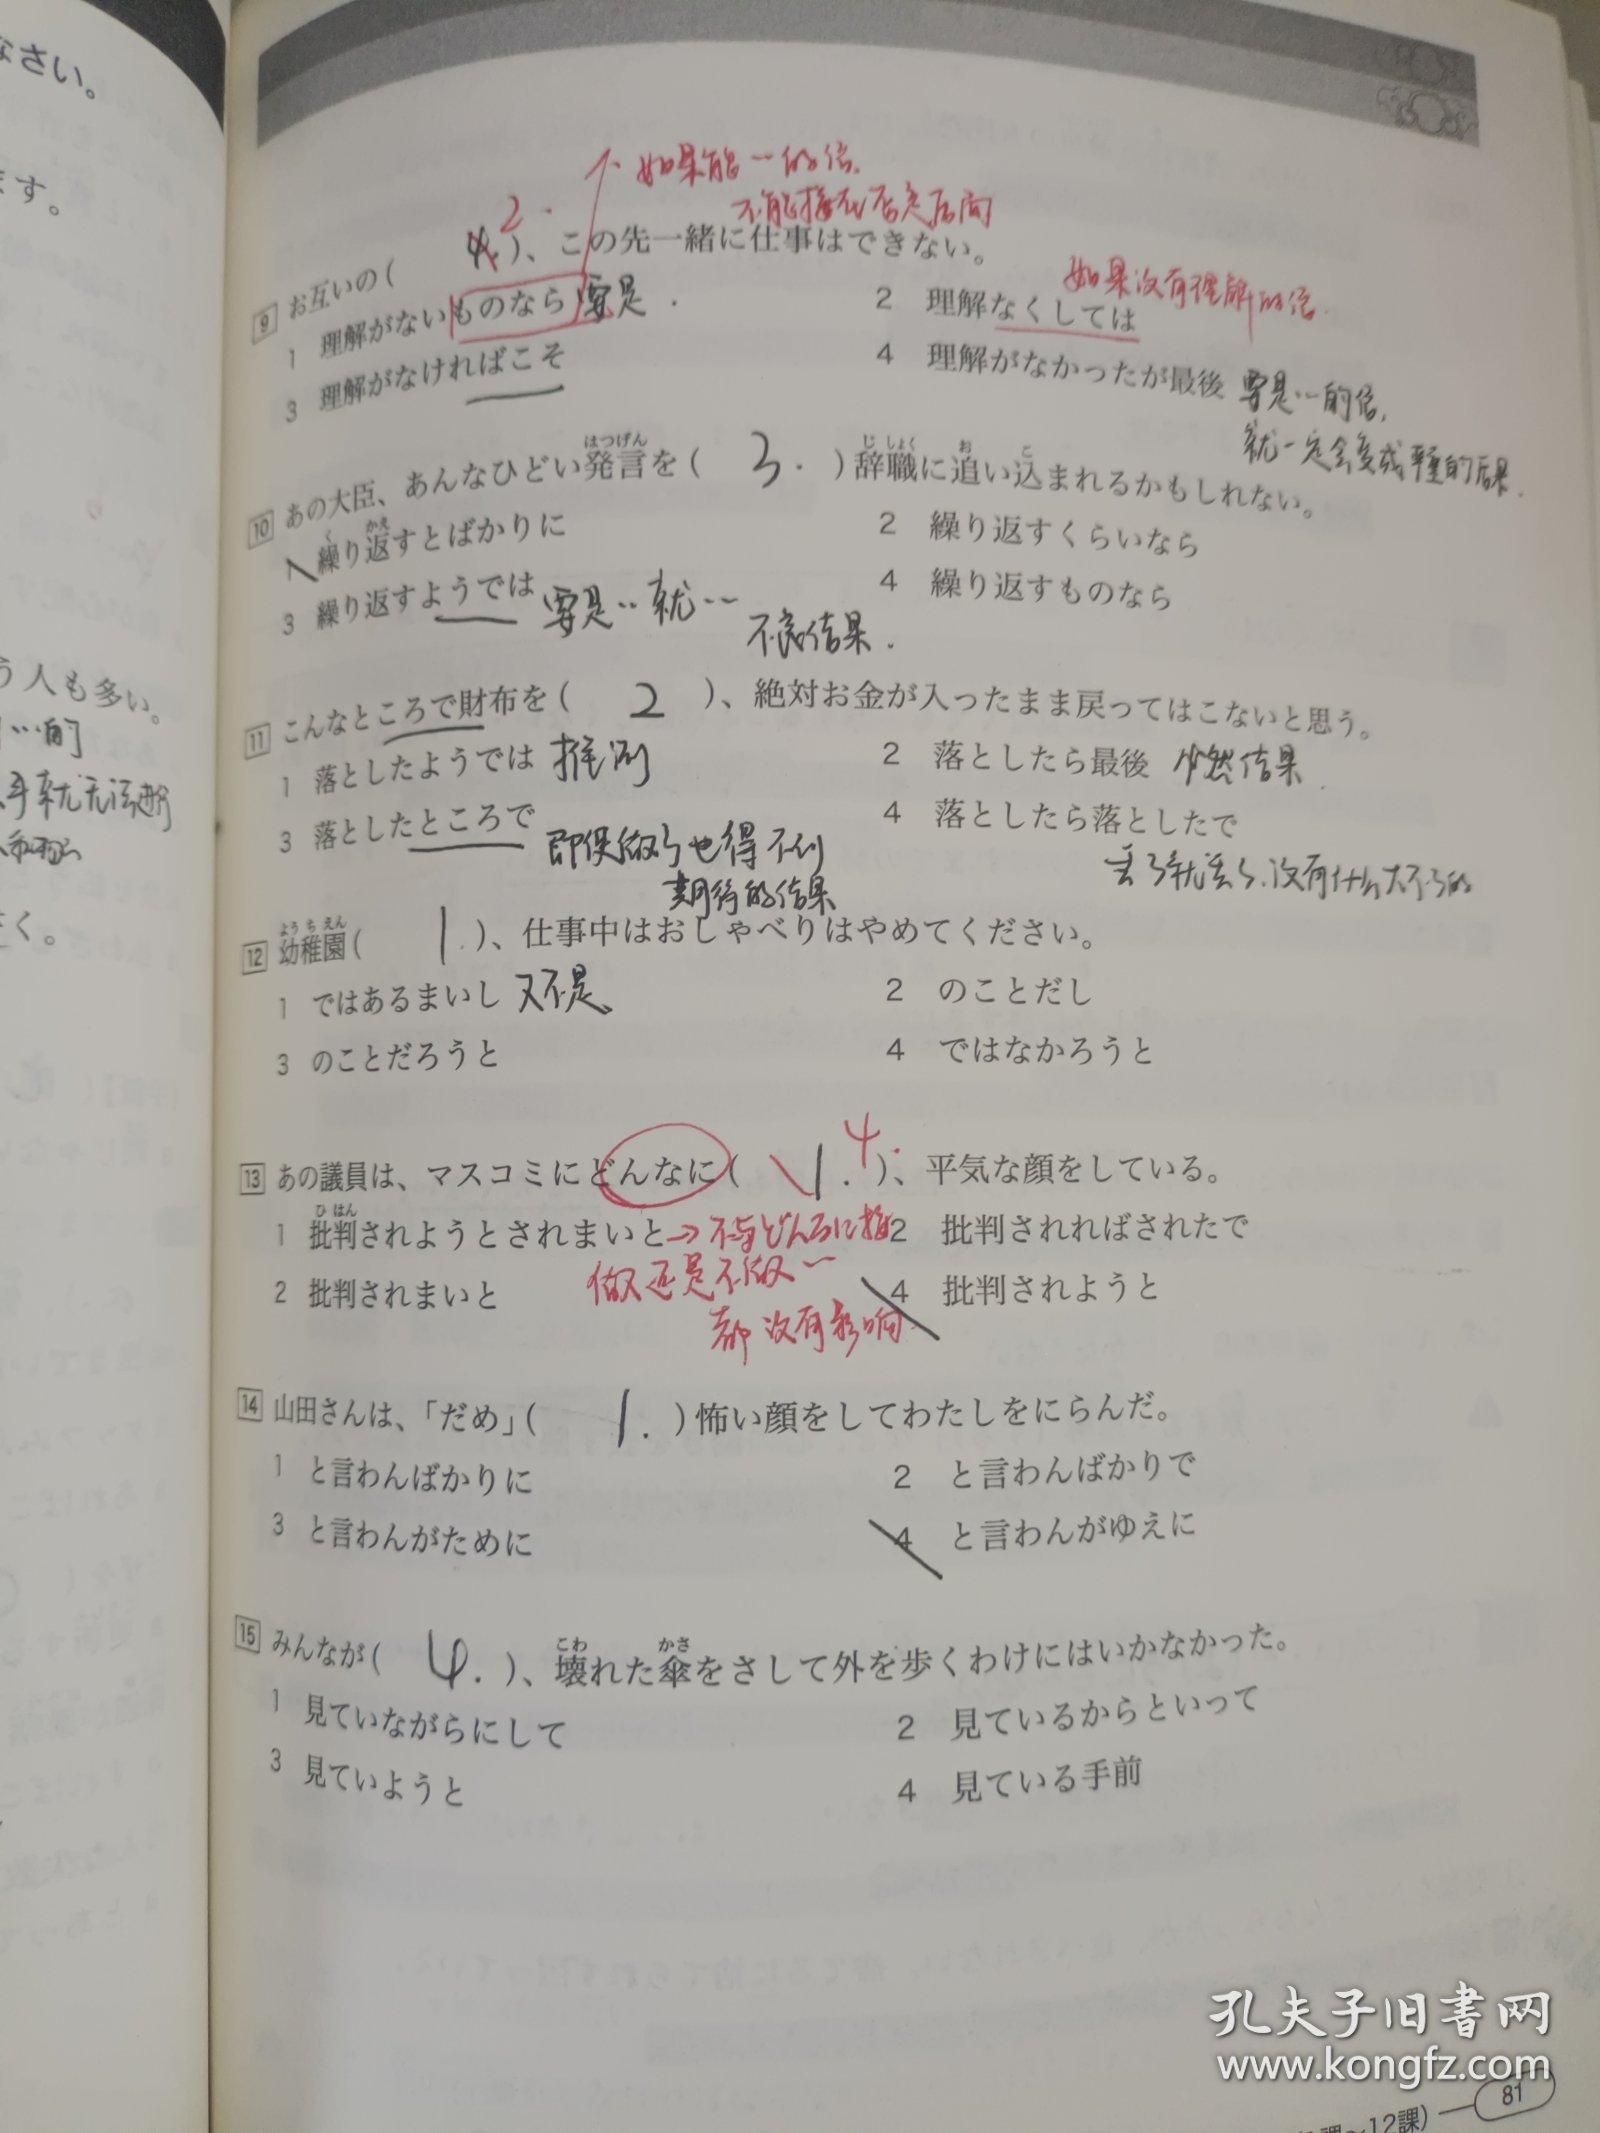 なさい。
ます。
う人も多い。
不如果能…的话.
不能接在否定后面
9 お互いの( 4 2. )、この先一緒に仕事はできない。
1 理解がないものなら 要是.
2 理解なくしては 如果没有理解的话.
3 理解がなければこそ
4 理解がなかったが最後 要是…的话,
就一定会变成严重的后果.
10 あの大臣、あんなひどい発言を( 3. )辞職に追い込まれるかもしれない。
はつげん じしょく お こ
1 繰り返すとばかりに
く かえ
2 繰り返すくらいなら
3 繰り返すようでは 要是…就…
不良结果.
4 繰り返すものなら
11 こんなところで財布を( 2 )、絶対お金が入ったまま戻ってはこないと思う。
1 落としたようでは 推测
2 落としたら最後 必然结果
3 落としたところで 即使做了也得不到
期待的结果
4 落としたら落としたで
丢了就丢了.没有什么大不了的
12 幼稚園( 1. )、仕事中はおしゃべりはやめてください。
ようちえん
1 ではあるまいし 又不是、
2 のことだし
3 のことだろうと
4 ではなかろうと
13 あの議員は、マスコミにどんなに( 1. 4. )、平気な顔をしている。
1 批判されようとされまいと→不与どんなに接
ひはん
2 批判されればされたで
做还是不做…
都没有影响.
2 批判されまいと
4 批判されようと
14 山田さんは、「だめ」( 1. )怖い顔をしてわたしをにらんだ。
1 と言わんばかりに
2 と言わんばかりで
3 と言わんがために
4 と言わんがゆえに
15 みんなが( 4. )、壊れた傘をさして外を歩くわけにはいかなかった。
こわ かさ
1 見ていながらにして
2 見ているからといって
3 見ていようと
4 見ている手前
孔夫子旧书网
www.kongfz.com
課~12課) 81